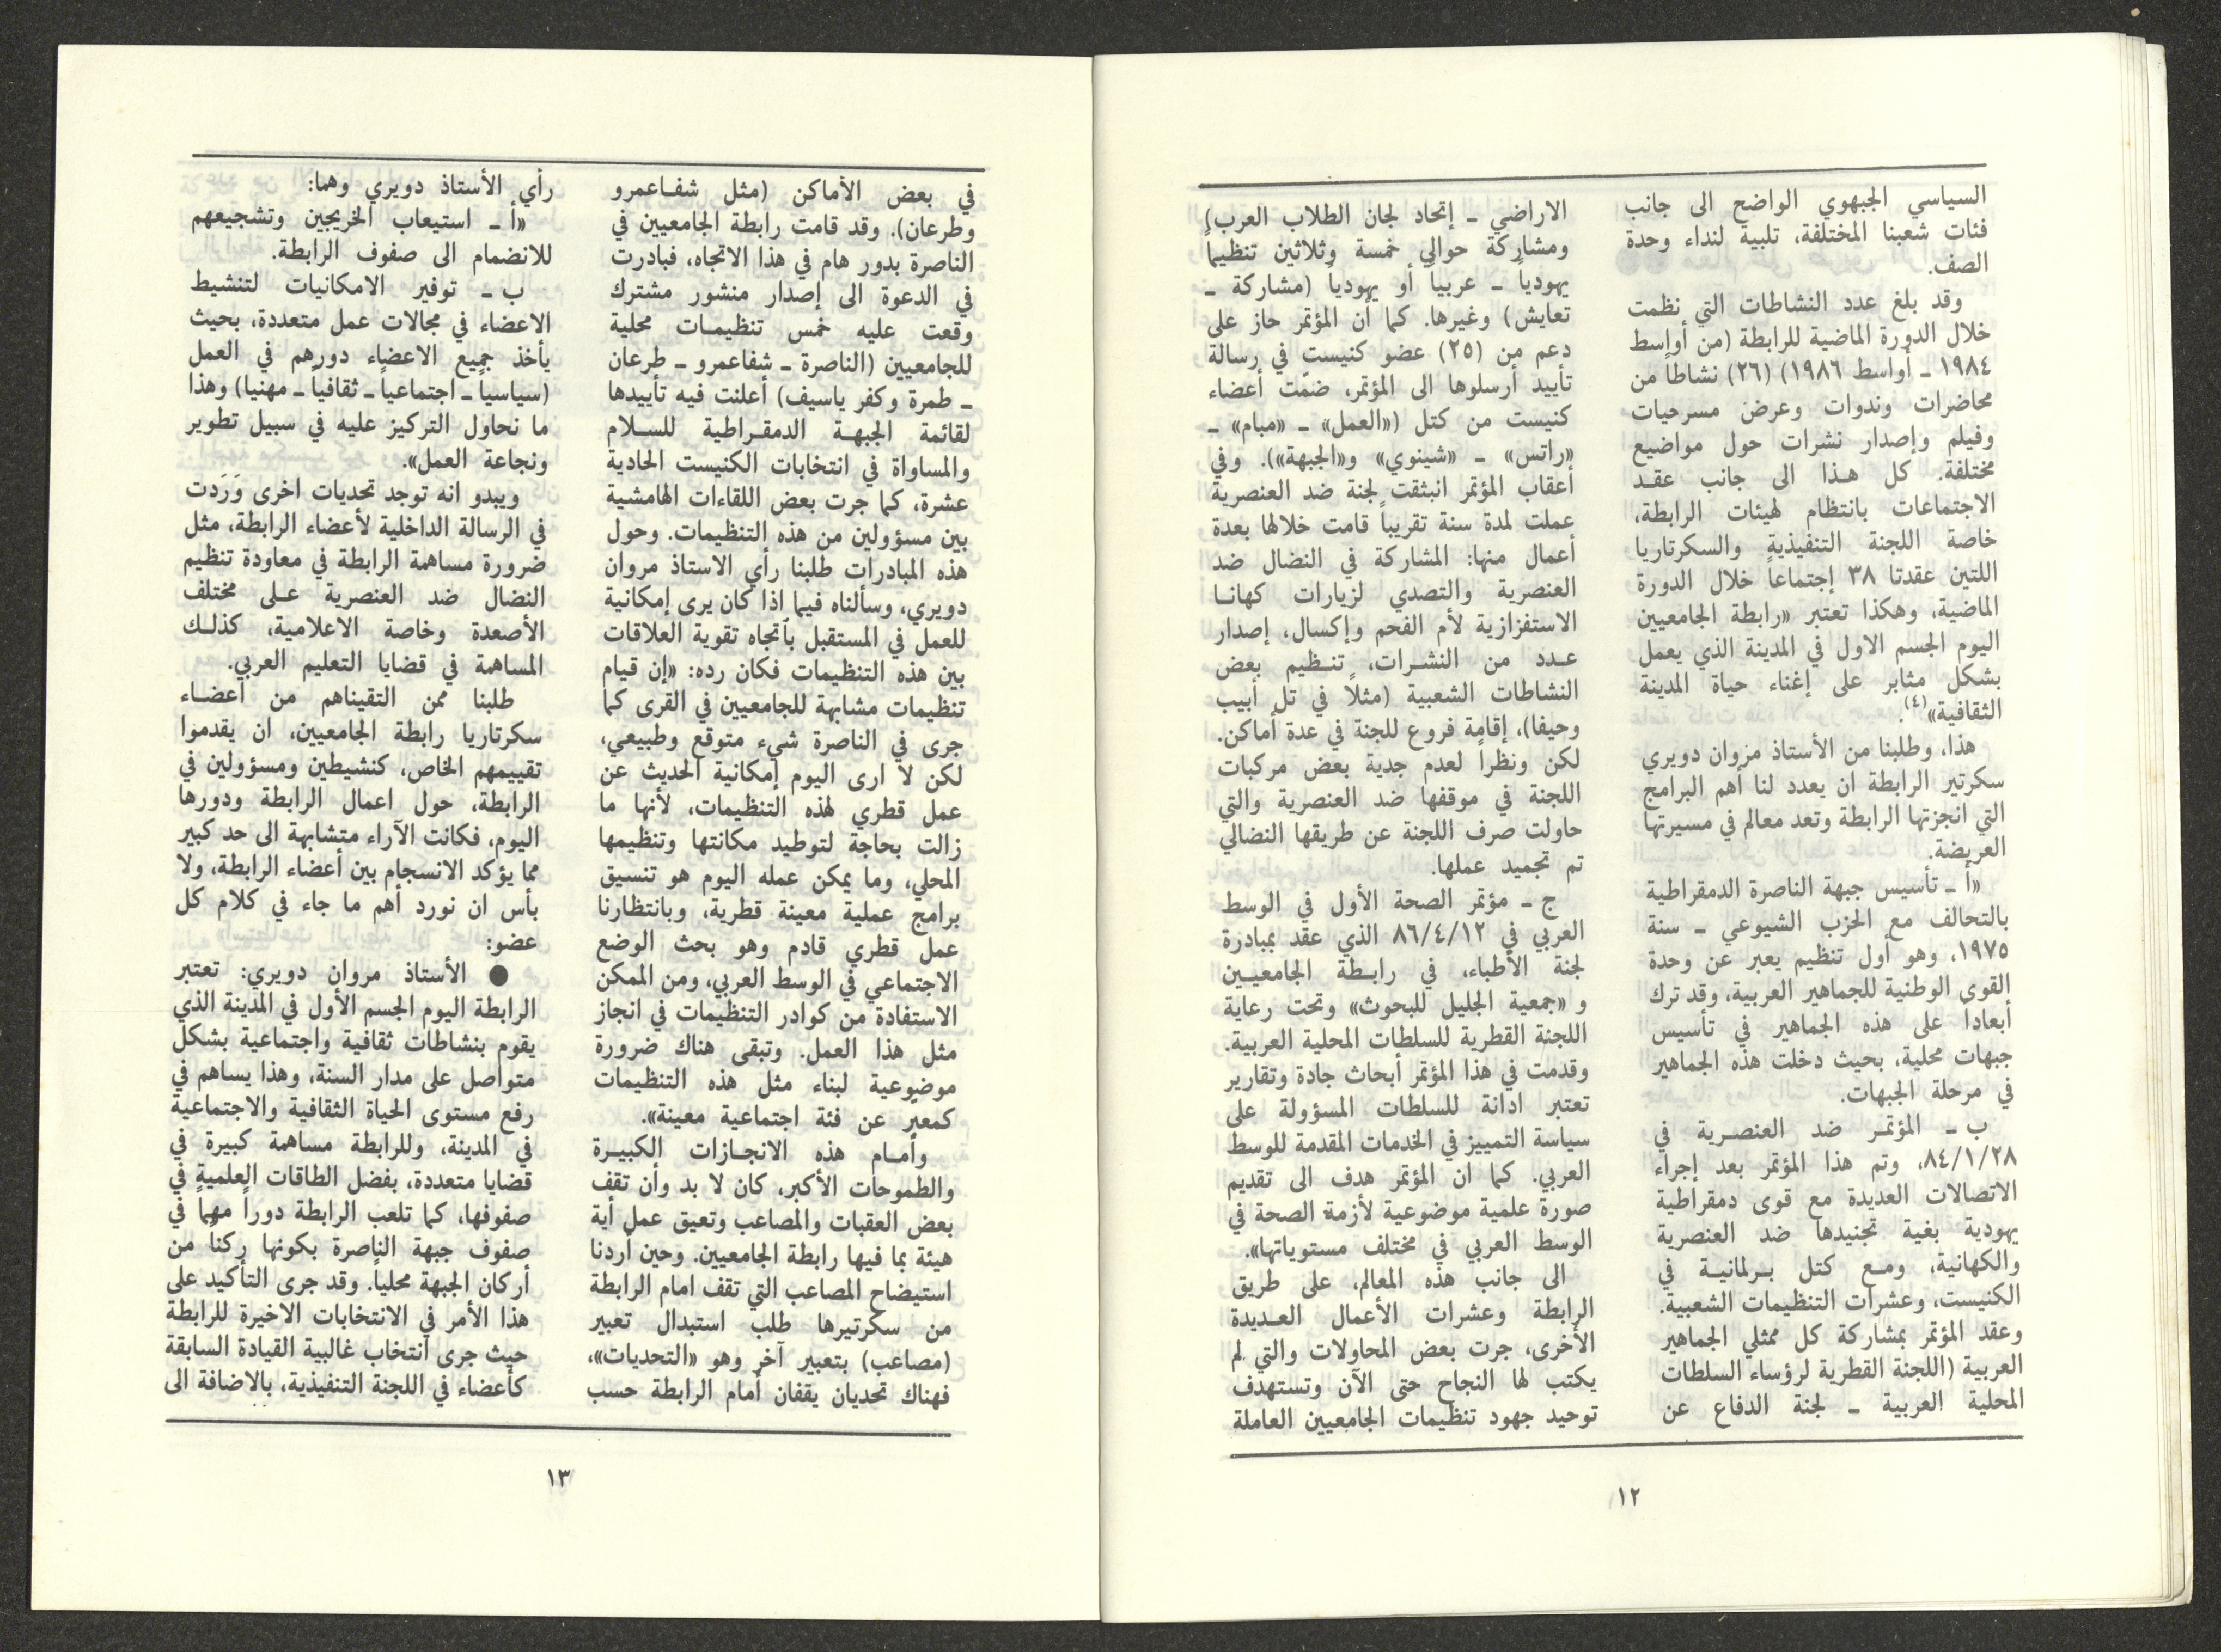 السياسي الجبهوي الواضح الى جانب
فئات شعبنا المختلفة، تلبية لنداء وحدة
الصف.
وقد بلغ عدد النشاطات التي نظمت
خلال الدورة الماضية للرابطة (من أواسط
١٩٨٤ ـ أواسط ١٩٨٦) (٢٦) نشاطاً من
محاضرات وندوات وعرض مسرحيات
وفيلم وإصدار نشرات حول مواضيع
مختلفة. كل هـذا الى جانب عقـد
الاجتماعات بانتظام لهيئات الرابطة،
خاصة اللجنة التنفيذية والسكرتاريا
اللتين عقدتا ٣٨ إجتماعاً خلال الدورة
الماضية، وهكذا تعتبر «رابطة الجامعيين
اليوم الجسم الاول في المدينة الذي يعمل
بشكل مثابر على إغناء حياة المدينة
الثقافية»(٤).
هذا، وطلبنا من الأستاذ مروان دويري
سكرتير الرابطة ان يعدد لنا أهم البرامج
التي انجزتها الرابطة وتعد معالم في مسيرتها
العريضة.
«أ ـ تأسيس جبهة الناصرة الدمقراطية
بالتحالف مع الحزب الشيوعي ـ سنة
١٩٧٥، وهو أول تنظيم يعبر عن وحدة
القوى الوطنية للجماهير العربية، وقد ترك
أبعاداً على هذه الجماهير في تأسيس
جبهات محلية، بحيث دخلت هذه الجماهير
في مرحلة الجبهات.
ب ـ المؤتمـر ضد العنصـرية في
٨٤/١/٢٨، وتم هذا المؤتمر بعد إجراء
الاتصالات العديدة مع قوى دمقراطية
يهودية بغية تجنيدها ضد العنصرية
والكهانية، ومـع كتل بـرلمانيـة في
الكنيست، وعشرات التنظيمات الشعبية.
وعقد المؤتمر بمشاركة كل ممثلي الجماهير
العربية (اللجنة القطرية لرؤساء السلطات
المحلية العربية ـ لجنة الدفاع عن
الاراضي ـ إتحاد لجان الطلاب العرب)
ومشاركة حوالي خمسة وثلاثين تنظيماً
يهودياً ـ عربياً أو يهودياً (مشاركة ـ
تعايش) وغيرها. كما أن المؤتمر حاز على
دعم من (٢٥) عضو كنيست في رسالة
تأييد أرسلوها الى المؤتمر، ضمّت أعضاء
كنيست من كتل («العمل» ـ «مبام» ـ
«راتس» ـ «شينوي» و«الجبهة»). وفي
أعقاب المؤتمر انبثقت لجنة ضد العنصرية
عملت لمدة سنة تقريباً قامت خلالها بعدة
أعمال منها: المشاركة في النضال ضد
العنصرية والتصدي لزيارات كهانـا
الاستفزازية لأم الفحم وإكسال، إصدار
عـدد من النشـرات، تنـظيم بعض
النشاطات الشعبية (مثلاً في تل أبيب
وحيفا)، إقامة فروع للجنة في عدة أماكن.
لكن ونظراً لعدم جدية بعض مركبات
اللجنة في موقفها ضد العنصرية والتي
حاولت صرف اللجنة عن طريقها النضالي
تم تجميد عملها.
ج ـ مؤتمر الصحة الأول في الوسط
العربي في ٨٦/٤/١٢ الذي عقد بمبادرة
لجنة الأطباء، في رابـطة الجامعيـين
و «جمعية الجليل للبحوث» وتحت رعاية
اللجنة القطرية للسلطات المحلية العربية.
وقدمت في هذا المؤتمر أبحاث جادة وتقارير
تعتبر ادانة للسلطات المسؤولة على
سياسة التمييز في الخدمات المقدمة للوسط
العربي. كما ان المؤتمر هدف الى تقديم
صورة علمية موضوعية لأزمة الصحة في
الوسط العربي في مختلف مستوياتها».
الى جانب هذه المعالم، على طريق
الرابطة وعشرات الأعمال العـديدة
الأخرى، جرت بعض المحاولات والتي لم
يكتب لها النجاح حتى الآن وتستهدف
توحيد جهود تنظيمات الجامعيين العاملة
١٢
في بعض الأماكن (مثل شفـاعمرو
وطرعان). وقد قامت رابطة الجامعيين في
الناصرة بدور هام في هذا الاتجاه، فبادرت
في الدعوة الى إصدار منشور مشترك
وقعت عليه خمس تنظيمـات محلية
للجامعيين (الناصرة ـ شفاعمرو ـ طرعان
ـ طمرة وكفر ياسيف) أعلنت فيه تأييدها
لقائمة الجبهـة الدمقـراطية للسـلام
والمساواة في انتخابات الكنيست الحادية
عشرة، كما جرت بعض اللقاءات الهامشية
بين مسؤولين من هذه التنظيمات. وحول
هذه المبادرات طلبنا رأي الاستاذ مروان
دويري، وسألناه فيما اذا كان يرى إمكانية
للعمل في المستقبل بأتجاه تقوية العلاقات
بين هذه التنظيمات فكان رده: «إن قيام
تنظيمات مشابهة للجامعيين في القرى كما
جرى في الناصرة شيء متوقع وطبيعي،
لكن لا ارى اليوم إمكانية الحديث عن
عمل قطري لهذه التنظيمات، لأنها ما
زالت بحاجة لتوطيد مكانتها وتنظيمها
المحلي، وما يمكن عمله اليوم هو تنسيق
برامج عملية معينة قطرية، وبانتظارنا
عمل قطري قادم وهو بحث الوضع
الاجتماعي في الوسط العربي، ومن الممكن
الاستفادة من كوادر التنظيمات في انجاز
مثل هذا العمل. وتبقى هناك ضرورة
موضوعية لبناء مثل هذه التنظيمات
كمعبرٍ عن فئة اجتماعية معينة».
وأمـام هذه الانجـازات الكبيـرة
والطموحات الأكبر، كان لا بد وأن تقف
بعض العقبات والمصاعب وتعيق عمل أية
هيئة بما فيها رابطة الجامعيين. وحين أردنا
استيضاح المصاعب التي تقف امام الرابطة
من سكرتيرها طلب استبدال تعبير
(مصاعب) بتعبير آخر وهو «التحديات»،
فهناك تحديان يقفان أمام الرابطة حسب
رأي الأستاذ دويري وهما:
«أ ـ استيعاب الخريجين وتشجيعهم
للانضمام الى صفوف الرابطة.
ب ـ توفير الامكانيات لتنشيط
الاعضاء في مجالات عمل متعددة، بحيث
يأخذ جميع الاعضاء دورهم في العمل
(سياسياً ـ اجتماعياً ـ ثقافياً ـ مهنيا) وهذا
ما نحاول التركيز عليه في سبيل تطوير
ونجاعة العمل».
ويبدو انه توجد تحديات اخرى وَرَدت
في الرسالة الداخلية لأعضاء الرابطة، مثل
ضرورة مساهمة الرابطة في معاودة تنظيم
النضال ضد العنصرية عـلى مختلف
الأصعدة وخاصة الاعلامية، كذلـك
المساهمة في قضايا التعليم العربي.
طلبنا ممن التقيناهم من أعضـاء
سكرتاريا رابطة الجامعيين، ان يقدموا
تقييمهم الخاص، كنشيطين ومسؤولين في
الرابطة، حول اعمال الرابطة ودورها
اليوم، فكانت الآراء متشابهة الى حد كبير
مما يؤكد الانسجام بين أعضاء الرابطة، ولا
بأس ان نورد أهم ما جاء في كلام كل
عضو:
● الأستاذ مروان دويري: تعتبر
الرابطة اليوم الجسم الأول في المدينة الذي
يقوم بنشاطات ثقافية واجتماعية بشكل
متواصل على مدار السنة، وهذا يساهم في
رفع مستوى الحياة الثقافية والاجتماعية
في المدينة، وللرابطة مساهمة كبيرة في
قضايا متعددة، بفضل الطاقات العلمية في
صفوفها، كما تلعب الرابطة دوراً مهماً في
صفوف جبهة الناصرة بكونها ركناً من
أركان الجبهة محلياً. وقد جرى التأكيد على
هذا الأمر في الانتخابات الاخيرة للرابطة
حيث جرى انتخاب غالبية القيادة السابقة
كأعضاء في اللجنة التنفيذية، بالاضافة الى
١٣